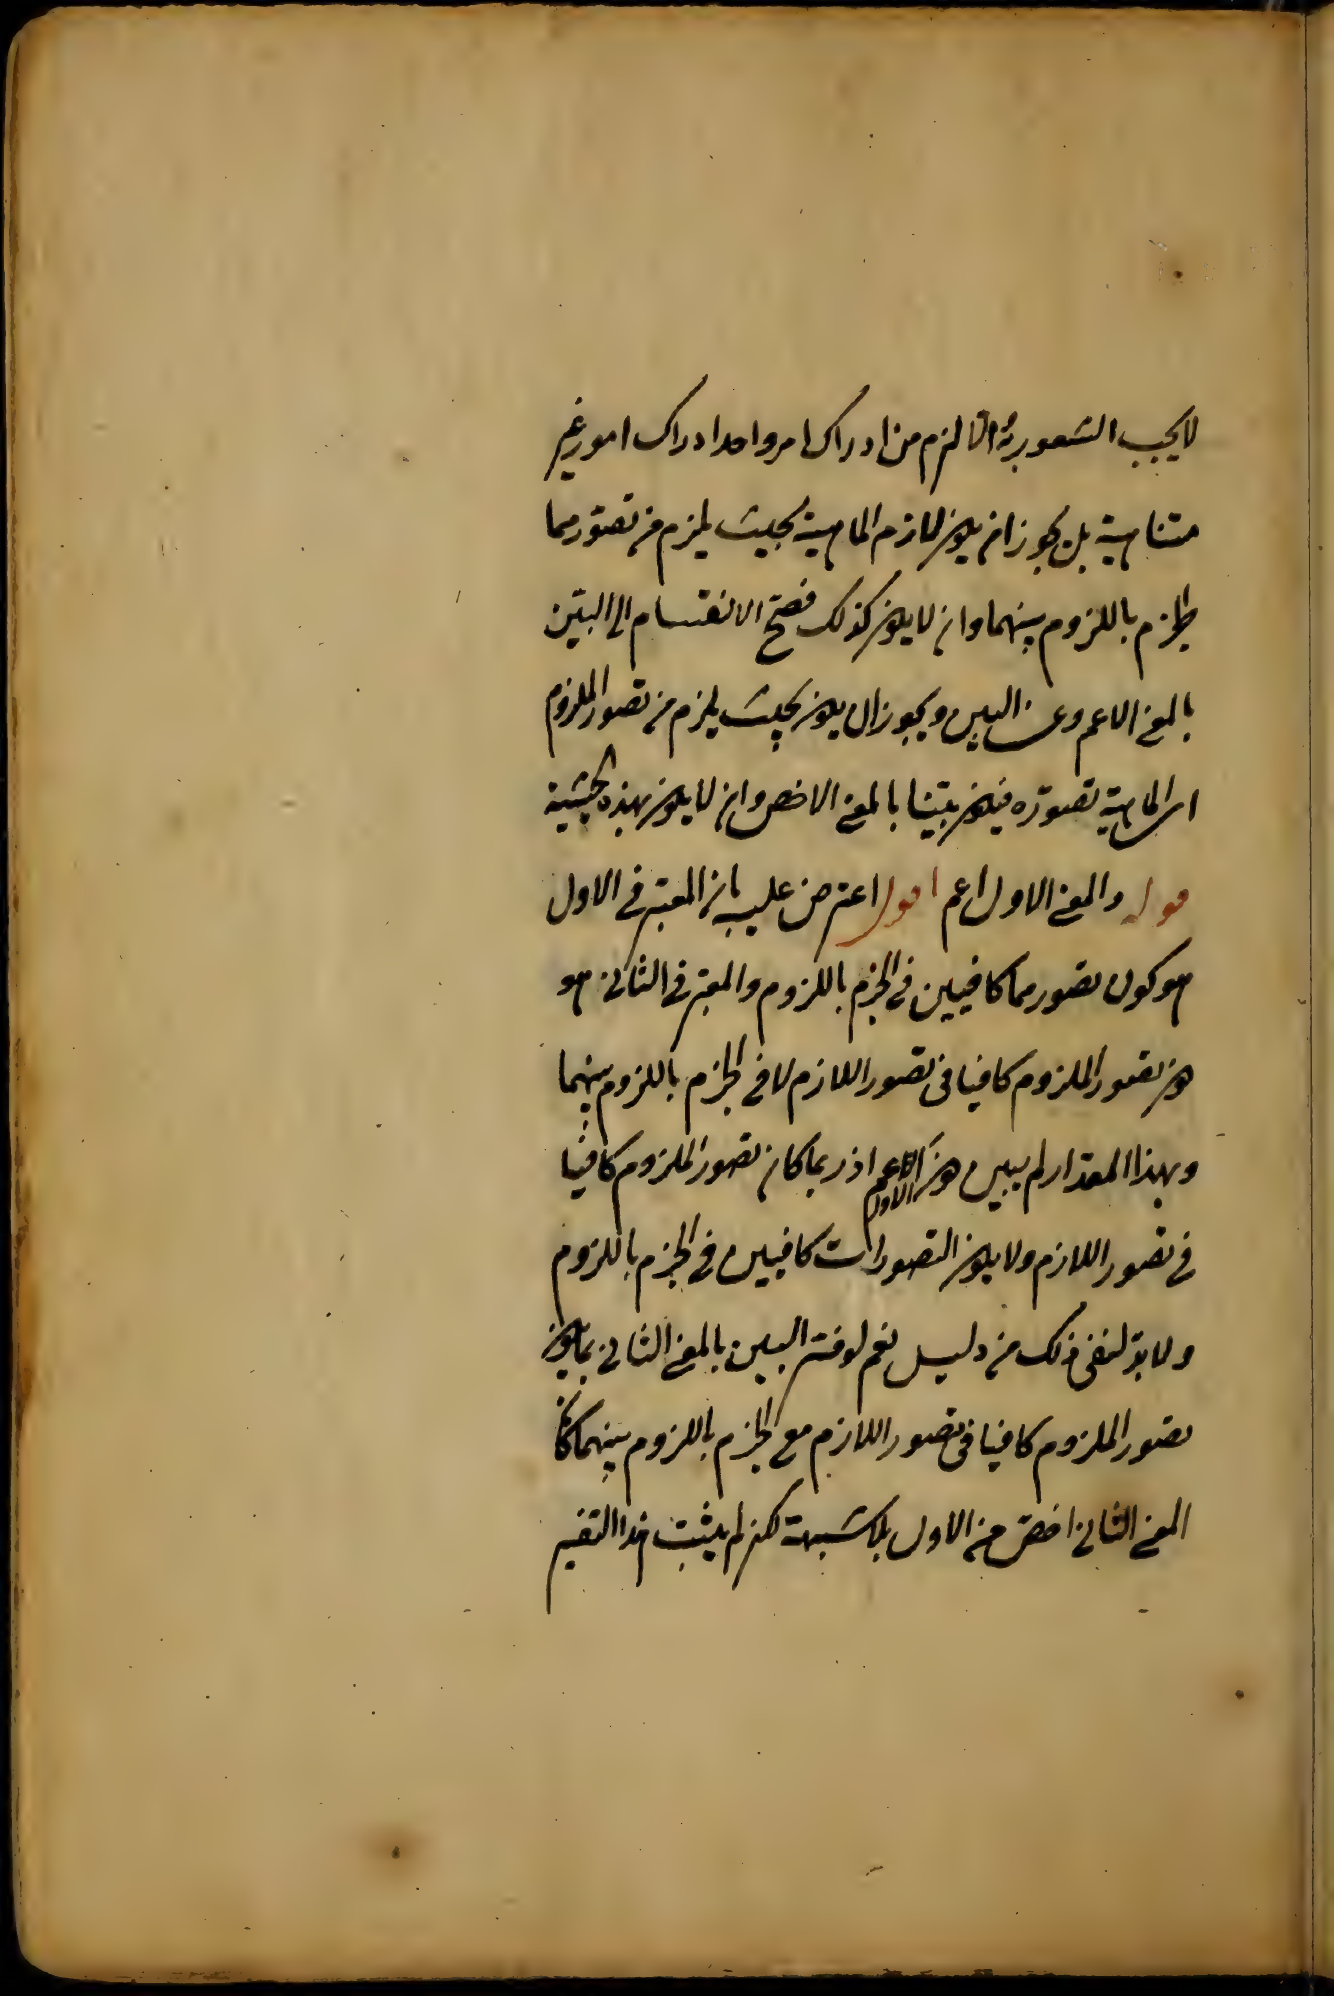 لا يجب الشعور به والا لزم من ادراك امر واحد ادراك امور غير
متناهية بل يجوز ان يكون لازم الماهية بحيث يلزم من تصورهما
الجزم باللزوم بينهما وان لا يكون كذلك فصح الانقسام الى البيّن
بالمعنى الاعم وغير البين ويجوز ان يكون بحيث يلزم من تصور الملزوم
اى الماهية تصوّره فيكون بيّنا بالمعنى الاخص وان لا يكون بهذه الحيثية
قوله والمعنى الاول اعم اقول اعترض عليه بان المعتبر فى الاول
هو كون تصورهما كافيين فى الجزم باللزوم والمعتبر فى الثانى هو
كون تصور الملزوم كافيا فى تصور اللازم لا فى الجزم باللزوم بينهما
وبهذا المقدار لم يتبين كون الاول اعم اذ ربما كان تصور الملزوم كافيا
فى تصور اللازم ولا يكون التصورات كافيين فى الجزم باللزوم
ولا بد لنفى ذلك من دليل نعم لو فسر البين بالمعنى الثانى بما يكون
تصور الملزوم كافيا فى تصور اللازم مع الجزم باللزوم بينهما كان
المعنى الثانى اخص من الاول بلا شبهة لكن لم يثبت هذا التفسير